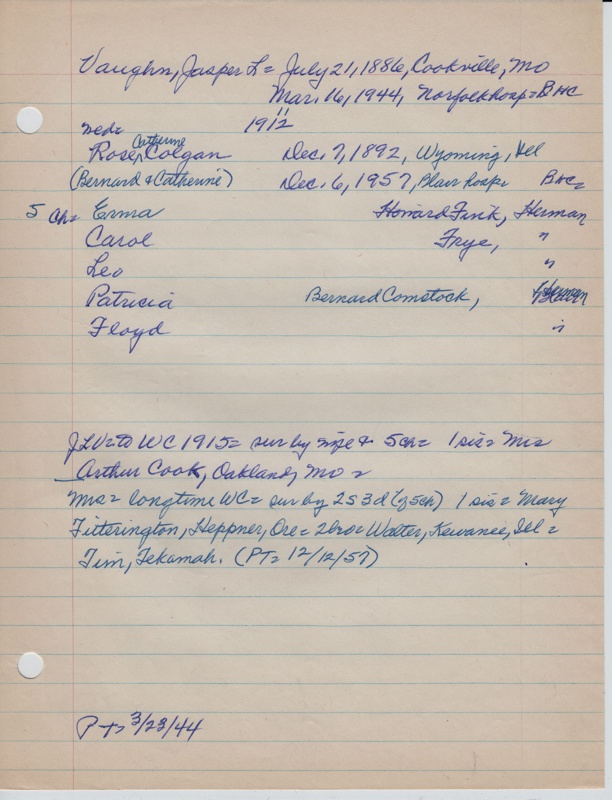 Vaughn, Jasper L= July 21, 1886, Cookville, Mo
Mar. 16, 1944, Norfolk Hosp= BHC
1912
med=
Catherine
Rose, Colgan Dec. 7, 1892, Wyoming, Ill
(Bernard & Catherine) Dec. 6, 1957, Blair Hosp= BHC=
5 ch= Erma Howard Fink, Herman
Carol Frye, "
Leo "
Patricia Bernard Comstock, Herman
Floyd "
JLV= to WC 1915= sur by wife & 5 ch= 1 sis= Mrs
Arthur Cook, Oakland, Mo=
Mrs= longtime WC= sur by 2s 3d (of 5ch) 1 sis= Mary
Fitterington, Heppner, Ore= 2 bro= Walter, Kewanee, Ill=
Tim, Tekamah. (PT= 12/12/57)
PT= 3/23/44